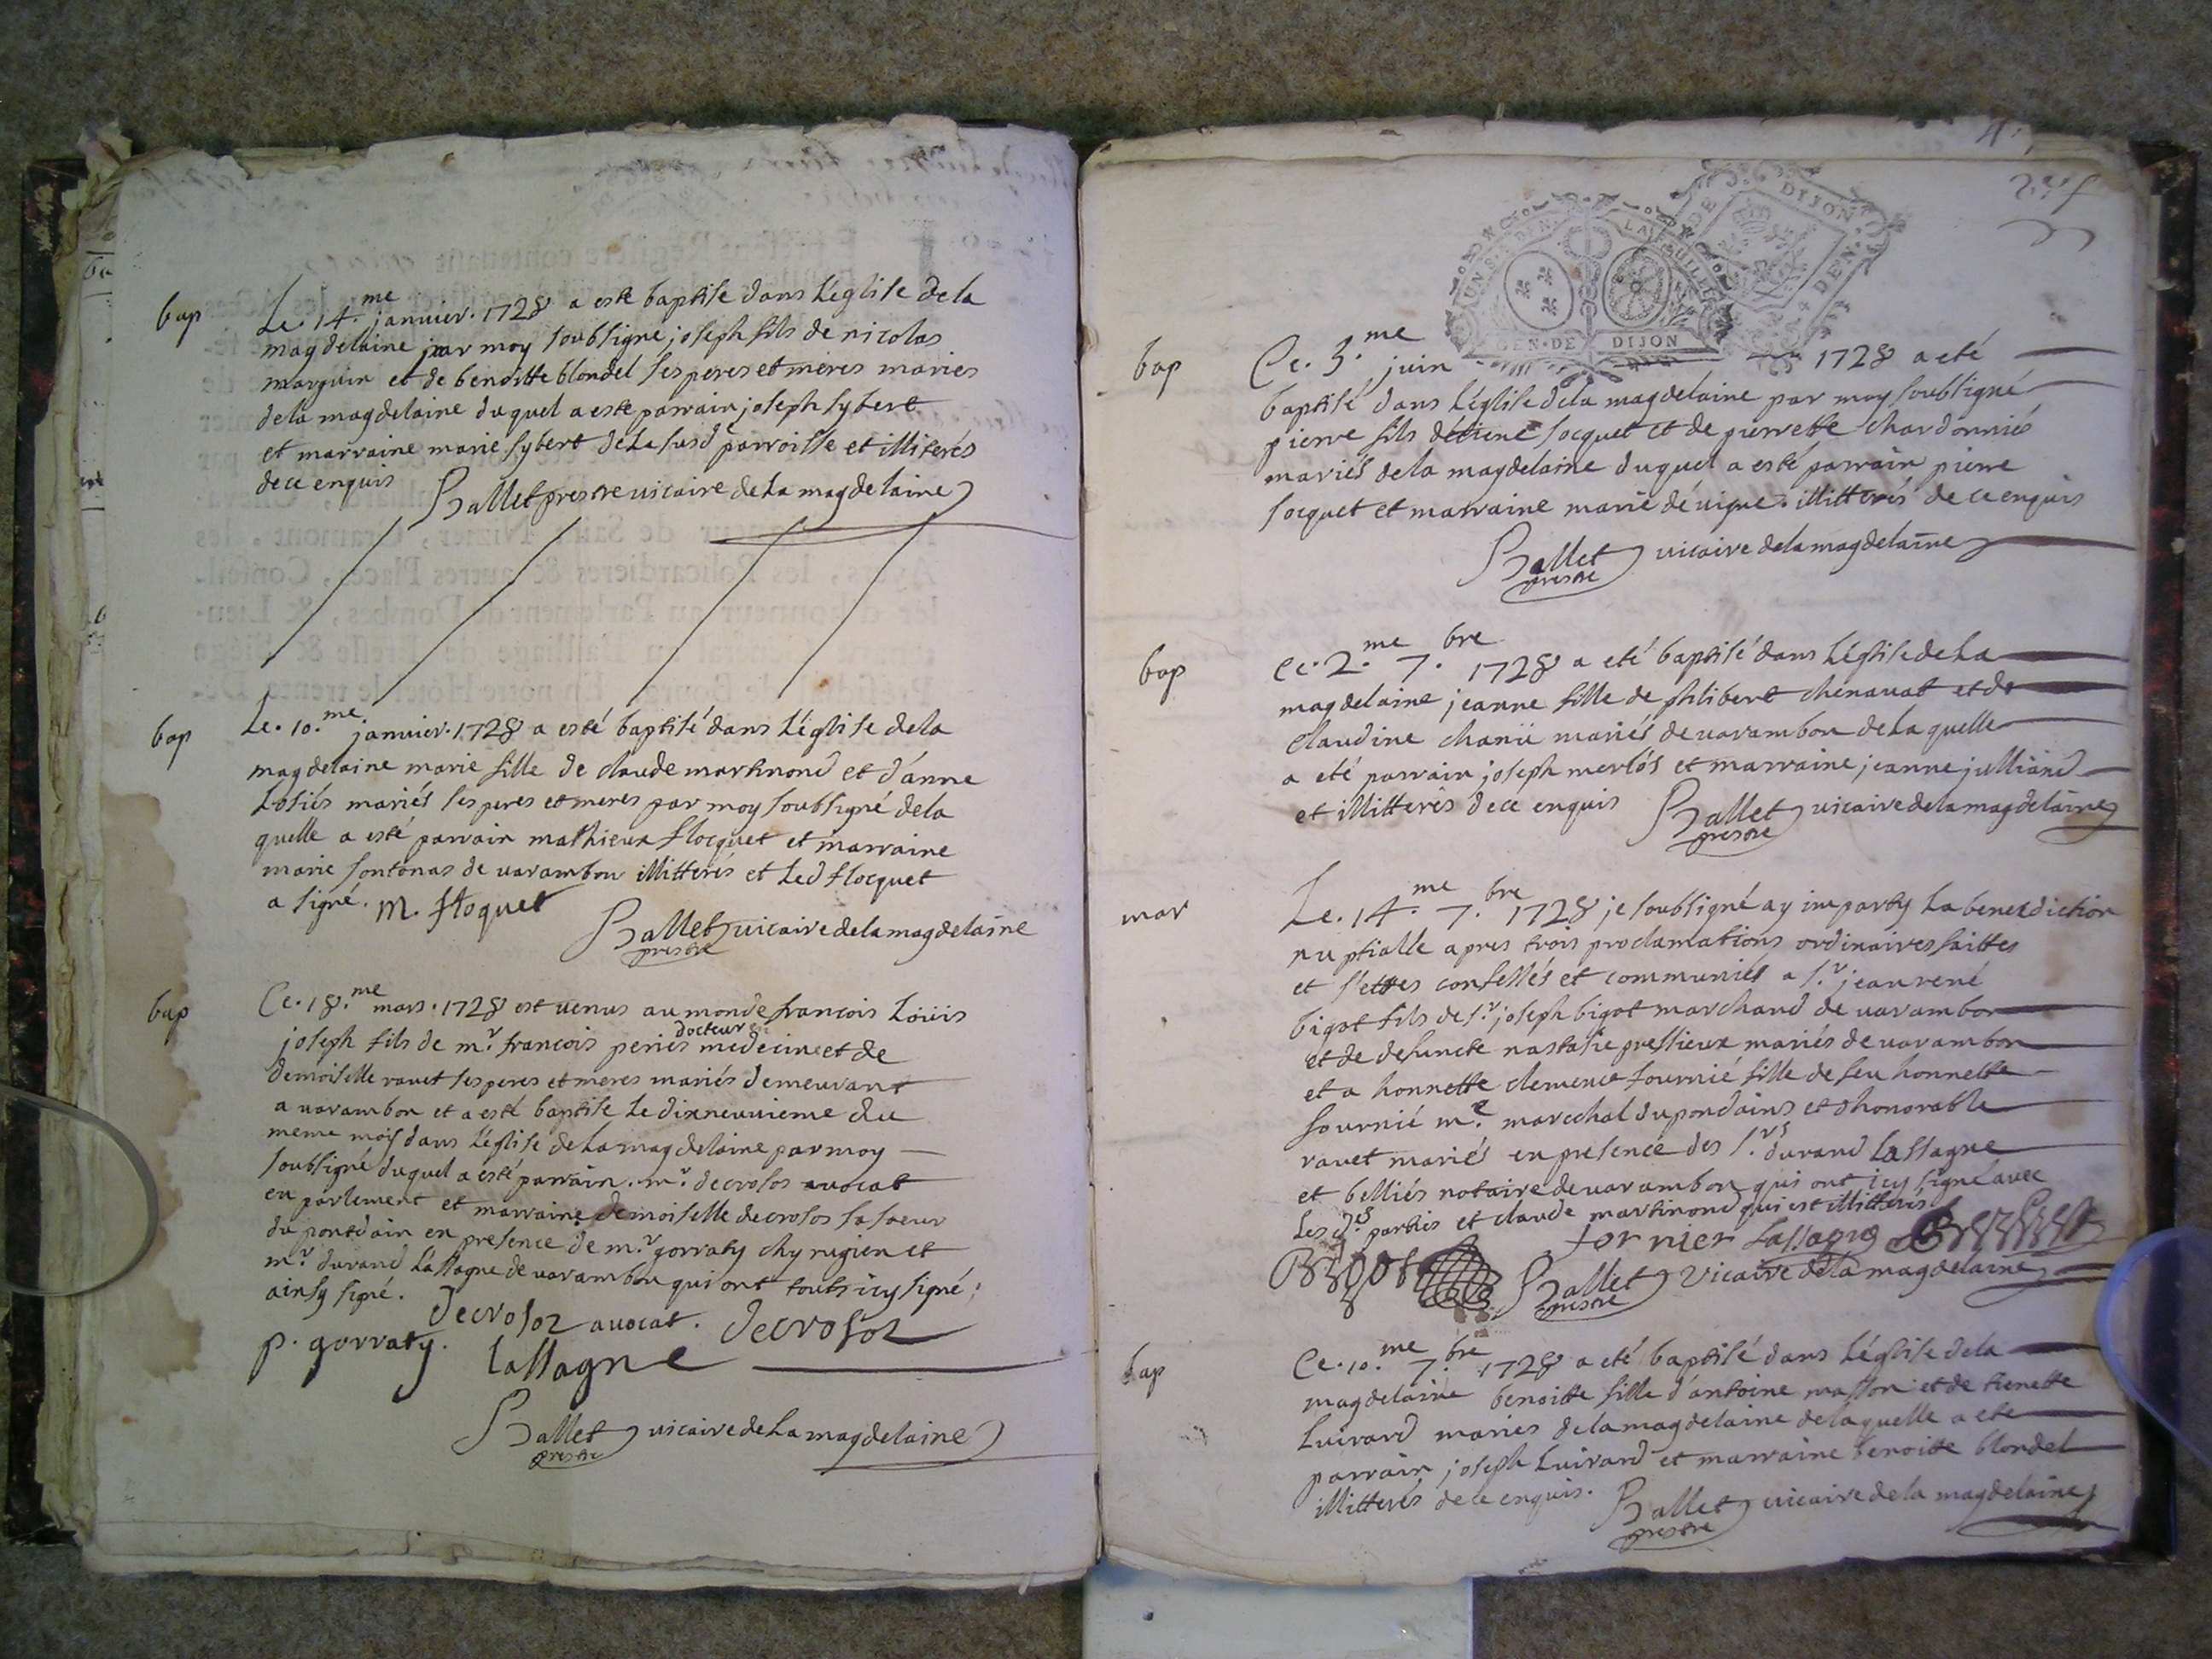 bap
Le. 14.me janvier. 1728 a esté baptisé dans L'église de la
magdelaine par moy soubsigné joseph fils de nicolas
marguin et de benoitte blondel ses peres et meres mariés
de la magdelaine duquel a esté parrain joseph sybert
et marraine marie sybert de La susd parroisse et illiterés
de ce enquis Ballet prestre vicaire de La magdelaine
bap
Le. 10.me janvier. 1728 a esté baptisé dans L'église de la
magdelaine marie fille de claude martinond et d'anne
Losiés mariés ses peres et meres par moy soubsigné de la
quelle a esté parrain mathieux flocquet et marraine
marie fontanas de varambon illitterés et Led flocquet
a signé. M. floquet
Ballet prestre vicaire de la magdelaine
bap
Ce. 18.me mars. 1728 est venus au monde françois Loüis
joseph fils de m.r françois periés docteur medecine et de
demoiselle ravet ses peres et meres mariés demeurant
a varambon et a esté baptisé Le dixneuvieme du
meme mois dans L'église de La magdelaine par moy
soubsigné duquel a esté parrain. m.r decrosos avocat
en parlement et marraine demoiselle decrosos sa soeur
du pontdain en presence de m.r gorraty chyrugien et
m.r durand Lassagne de varambon qui ont touts icy signé;
ainsy signé. Decrosoz avocat. Decrosoz
p. gorraty. Lassagne
Ballet prestre vicaire de La magdelaine
UN S. 4 DEN.
GEN. DE DIJON
DIJON
4 DEN.
bap
Ce. 3.me juin 1728 a eté
baptisé dans L'église de la magdelaine par moy soubsigné
pierre fils detiene socquet et de pierrette chardonniés
mariés de la magdelaine duquel a esté parrain pierre
socquet et marraine marie dévigne. illitterés de ce enquis
Ballet prestre vicaire de la magdelaine
bap
Ce. 2.me 7.bre 1728 a eté baptisé dans L'église de La
magdelaine jeanne fille de philibert chenavat et de
claudine chanü mariés de varambon de La quelle
a eté parrain joseph merlos et marraine jeanne julliand
et illitterés de ce enquis Ballet prestre vicaire de la magdelaine
mar
Le. 14.me 7.bre 1728 je soubsigné ay imparty La benediction
nuptialle apres trois proclamations ordinaires faittes
et s'ettes confessés et communiés a s.r jean rené
bigot fils de s.r joseph bigot marchand de varambon
et de defuncte nastasie pressieux mariés de varambon
et a honnette clemence fournié fille de feu honnette
fournié m.e marechal du pondains et d honorable
ravet mariés en presence des s.rs durand Lassagne
et belliés notaire de varambon qui ont icy signé avec
Les d.es parties et claude martinond qui est illitterés
fornier Lassagne
Bigot Ballet prestre vicaire de la magdelaine
bap
Ce. 10.me 7.bre 1728 a eté baptisé dans L'église de la
magdelaine benoitte fille d'antoine masson et de tienette
Luirard mariés de la magdelaine de laquelle a eté
parrain joseph Luirard et marraine benoitte blondel
illitterés de ce enquis. Ballet prestre vicaire de la magdelaine